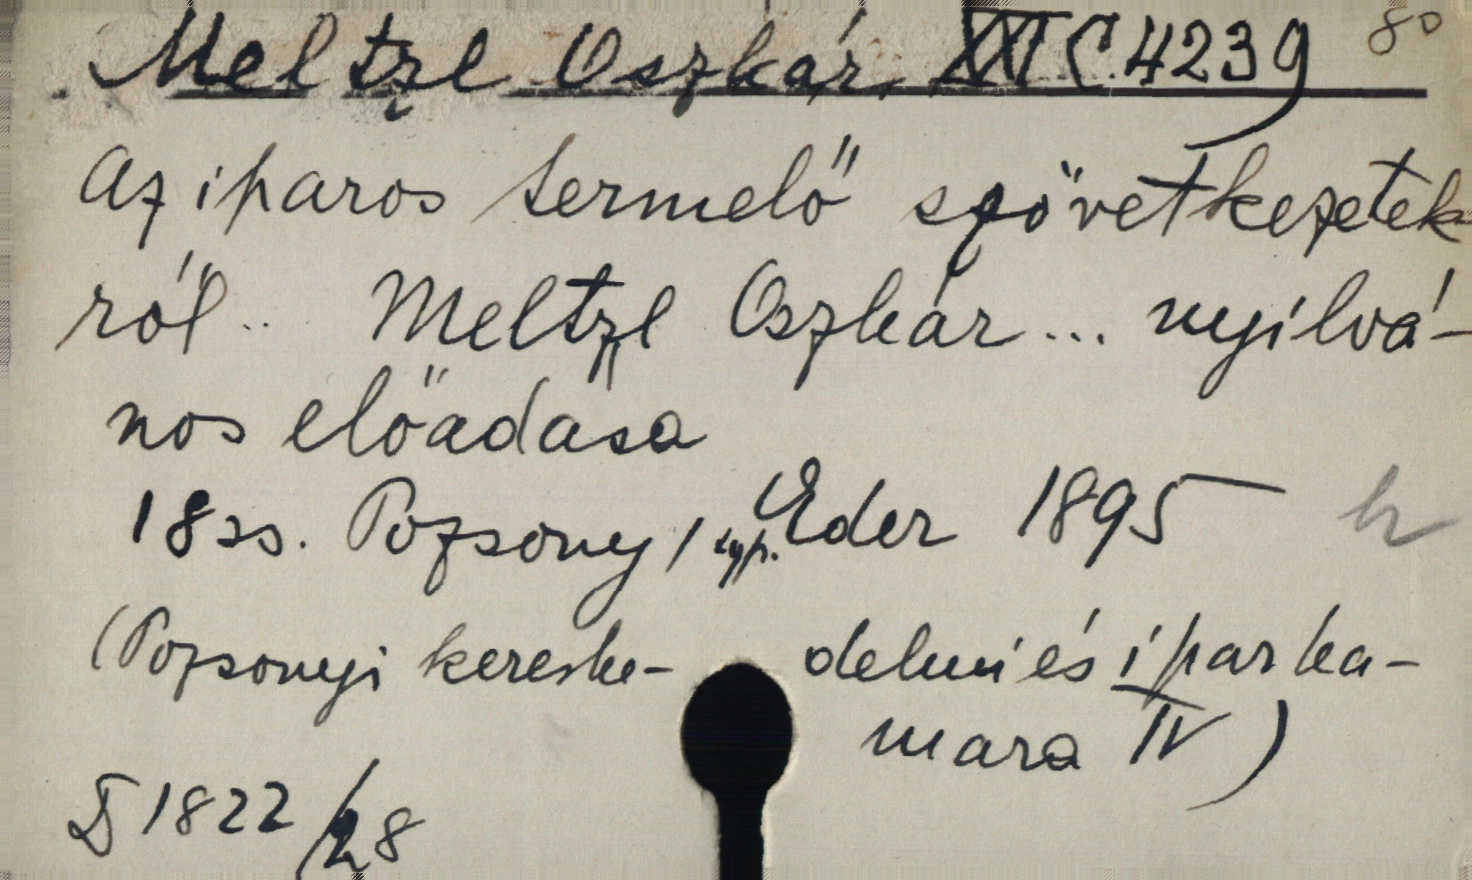 Meltzl Oszkár. XXI C. 4239 8°
Az iparos termelő szövetkezetek-
ről.. Meltzl Oszkár... nyilvá-
nos előadása
18 ss. Pozsony, typ. Eder 1895 h
(Pozsonyi kereske- delmi és ipar ka-
mara IV)
1822/28